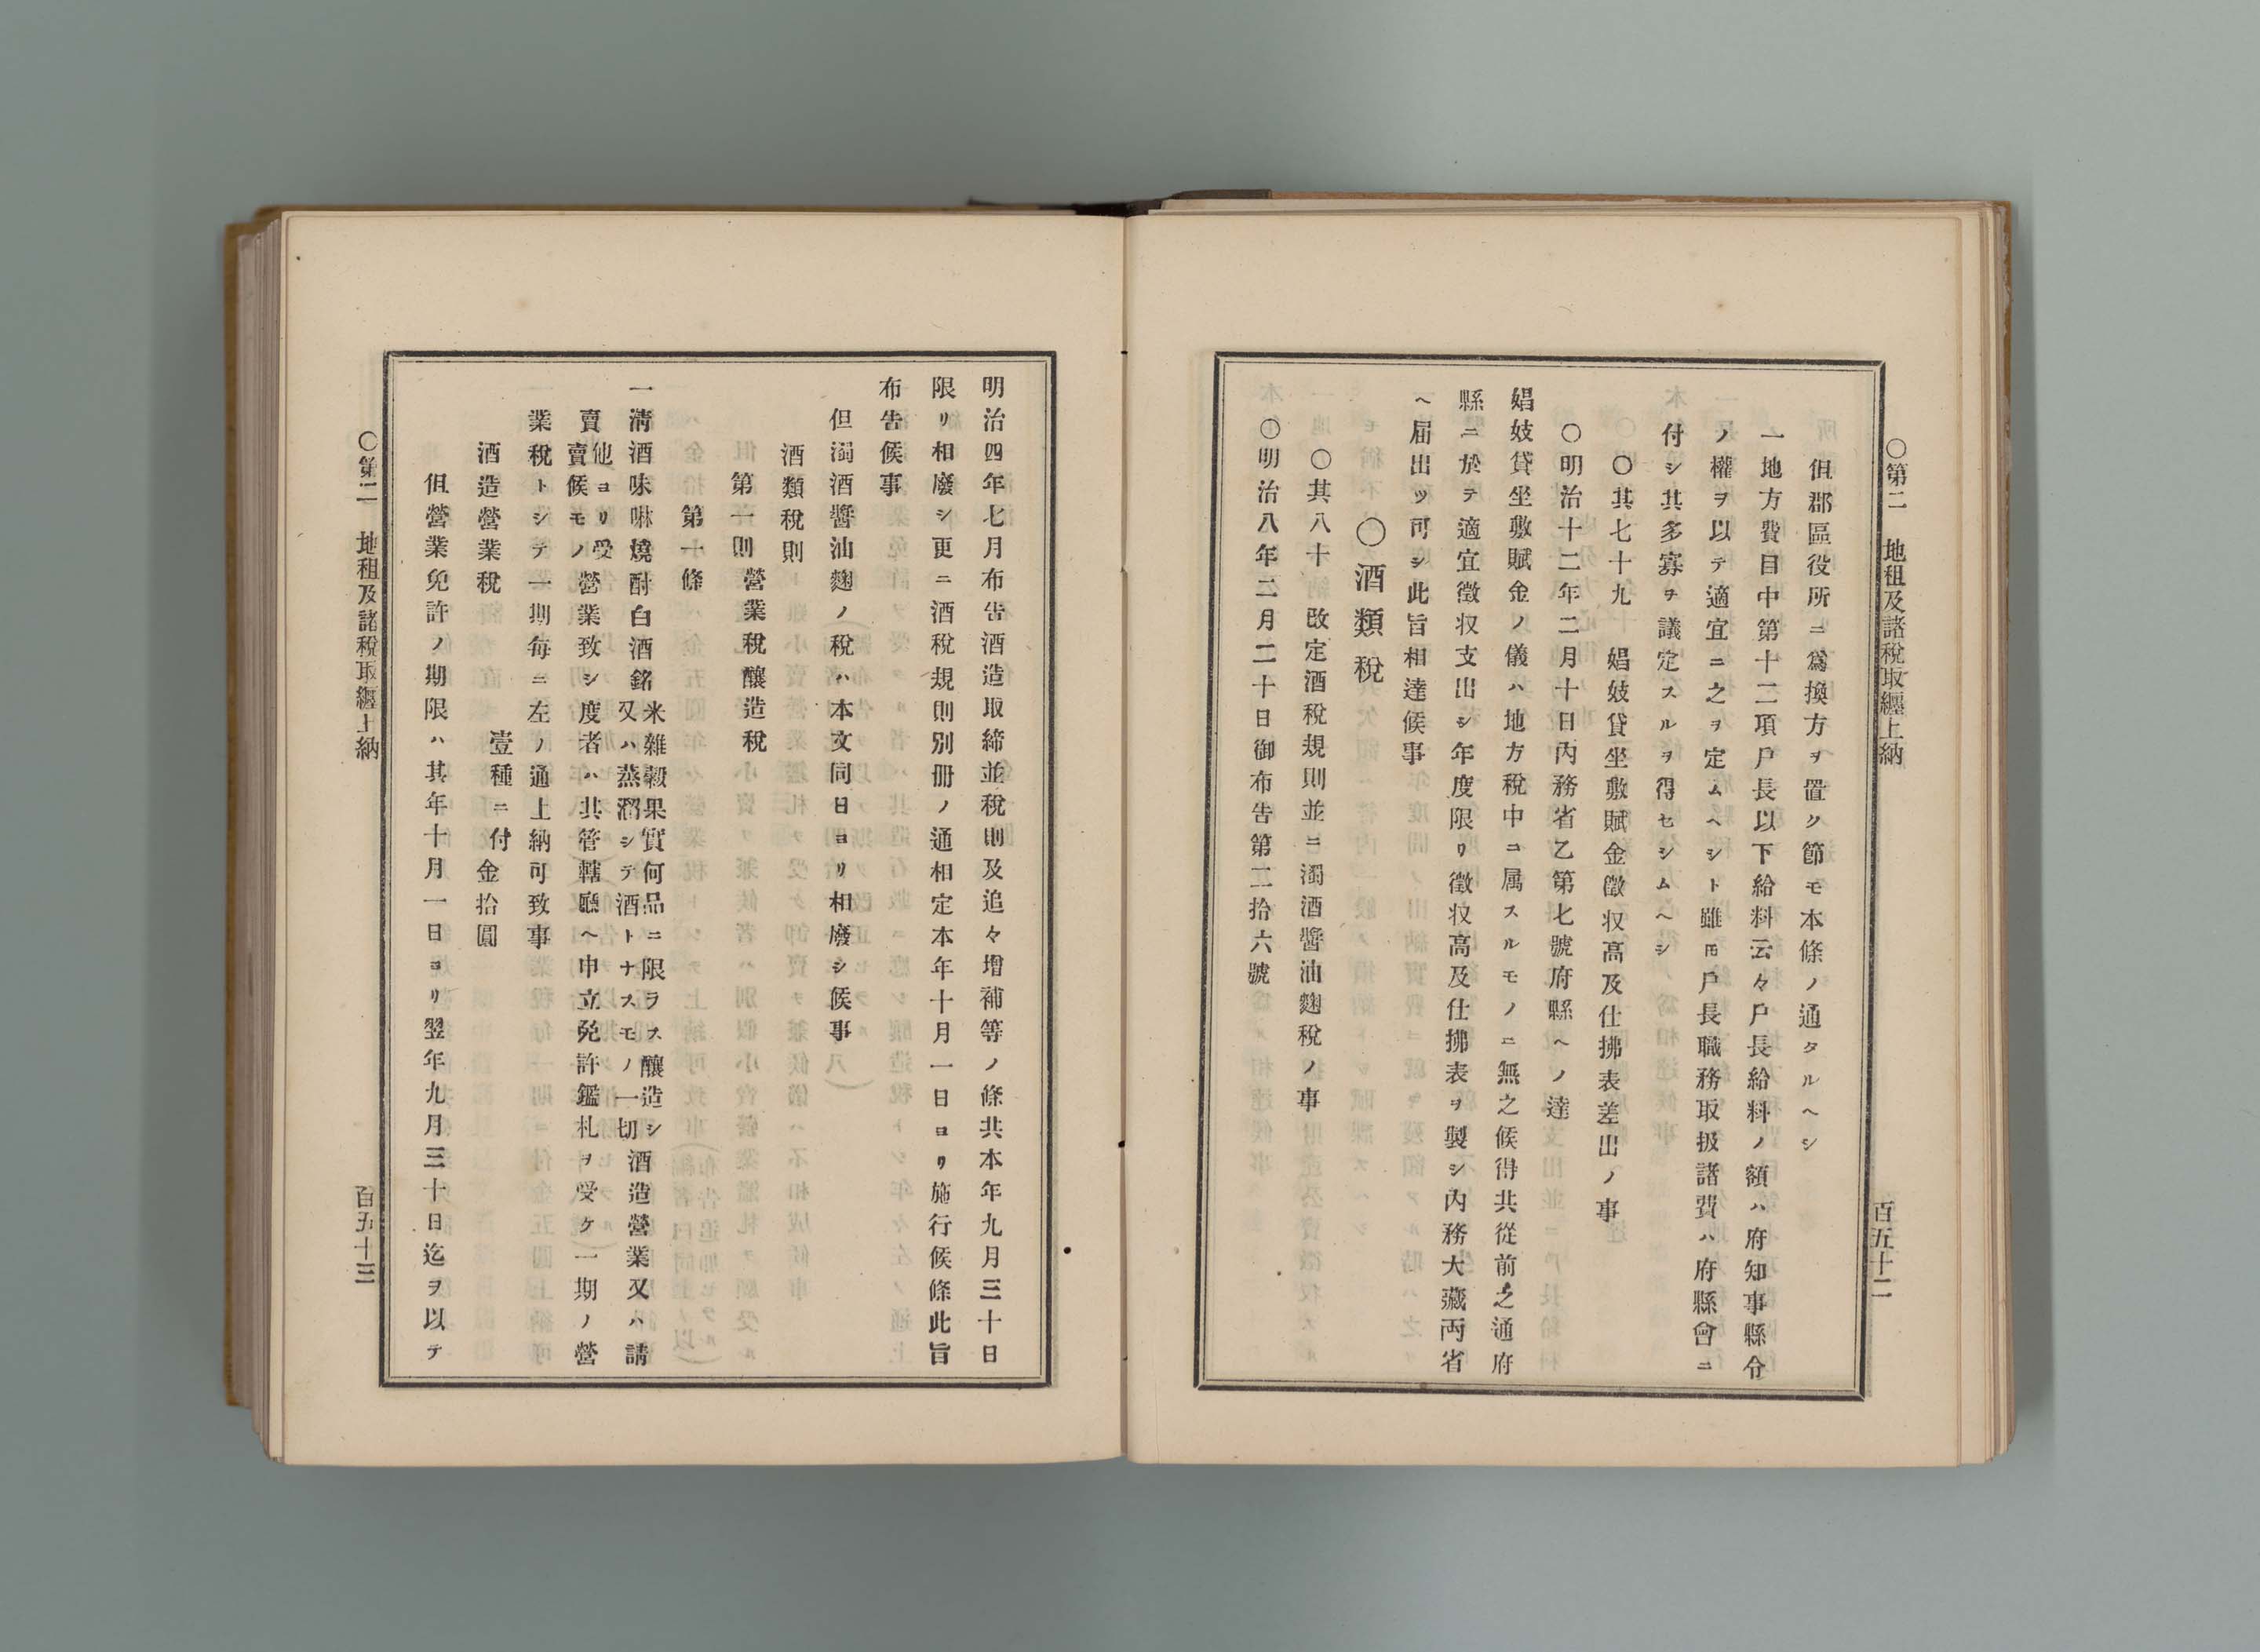 〇第二　地租及諸税取纒上納　百五十二
但郡區役所ニ爲換方ヲ置ク節モ本條ノ通タルヘシ
一地方費目中第十二項戸長以下給料云々戸長給料ノ額ハ府知事縣令
ノ權ヲ以テ適宜ニ之ヲ定ムヘシト雖𪜈戸長職務取扱諸費ハ府縣會ニ
付シ其多寡ヲ議定スルヲ得セシムヘシ
〇其七十九　娼妓貸坐敷賦金徴収高及仕拂表差出ノ事
〇明治十二年二月十日內務省乙第七號府縣ヘノ達
娼妓貸坐敷賦金ノ儀ハ地方税中ニ属スルモノニ無之候得共從前之通府
縣ニ於テ適宜徴収支出シ年度限リ徴収高及仕拂表ヲ製シ內務大藏両省
ヘ届出ツ可シ此旨相達候事
〇酒類稅
〇其八十　改定酒稅規則並ニ濁酒醬油麹稅ノ事
〇明治八年二月二十日御布告第二拾六號
明治四年七月布告酒造取締並稅則及追々增補等ノ條共本年九月三十日
限リ相廢シ更ニ酒稅規則別册ノ通相定本年十月一日ヨリ施行候條此旨
布告候事
但濁酒醬油麹ノ稅ハ本文同日ヨリ相廢シ候事
酒類稅則
第一則　營業稅釀造稅
第一條
一淸酒味啉燒酎白酒銘酒造營業又ハ請
米雜穀果實何品ニ限ラス釀造シ
又ハ蒸溜シテ酒トナスモノ一切
賣營業致シ度者ハ其管轄廳ヘ申立免許鑑札ヲ受ケ一期ノ營
他ヨリ受
賣候モノ
業稅トシテ一期每ニ左ノ通上納可致事
酒造營業稅　壹種ニ付　金拾圓
但營業免許ノ期限ハ其年十月一日ヨリ翌年九月三十日迄ヲ以テ
〇第二　地租及諸稅取纒上納　百五十三